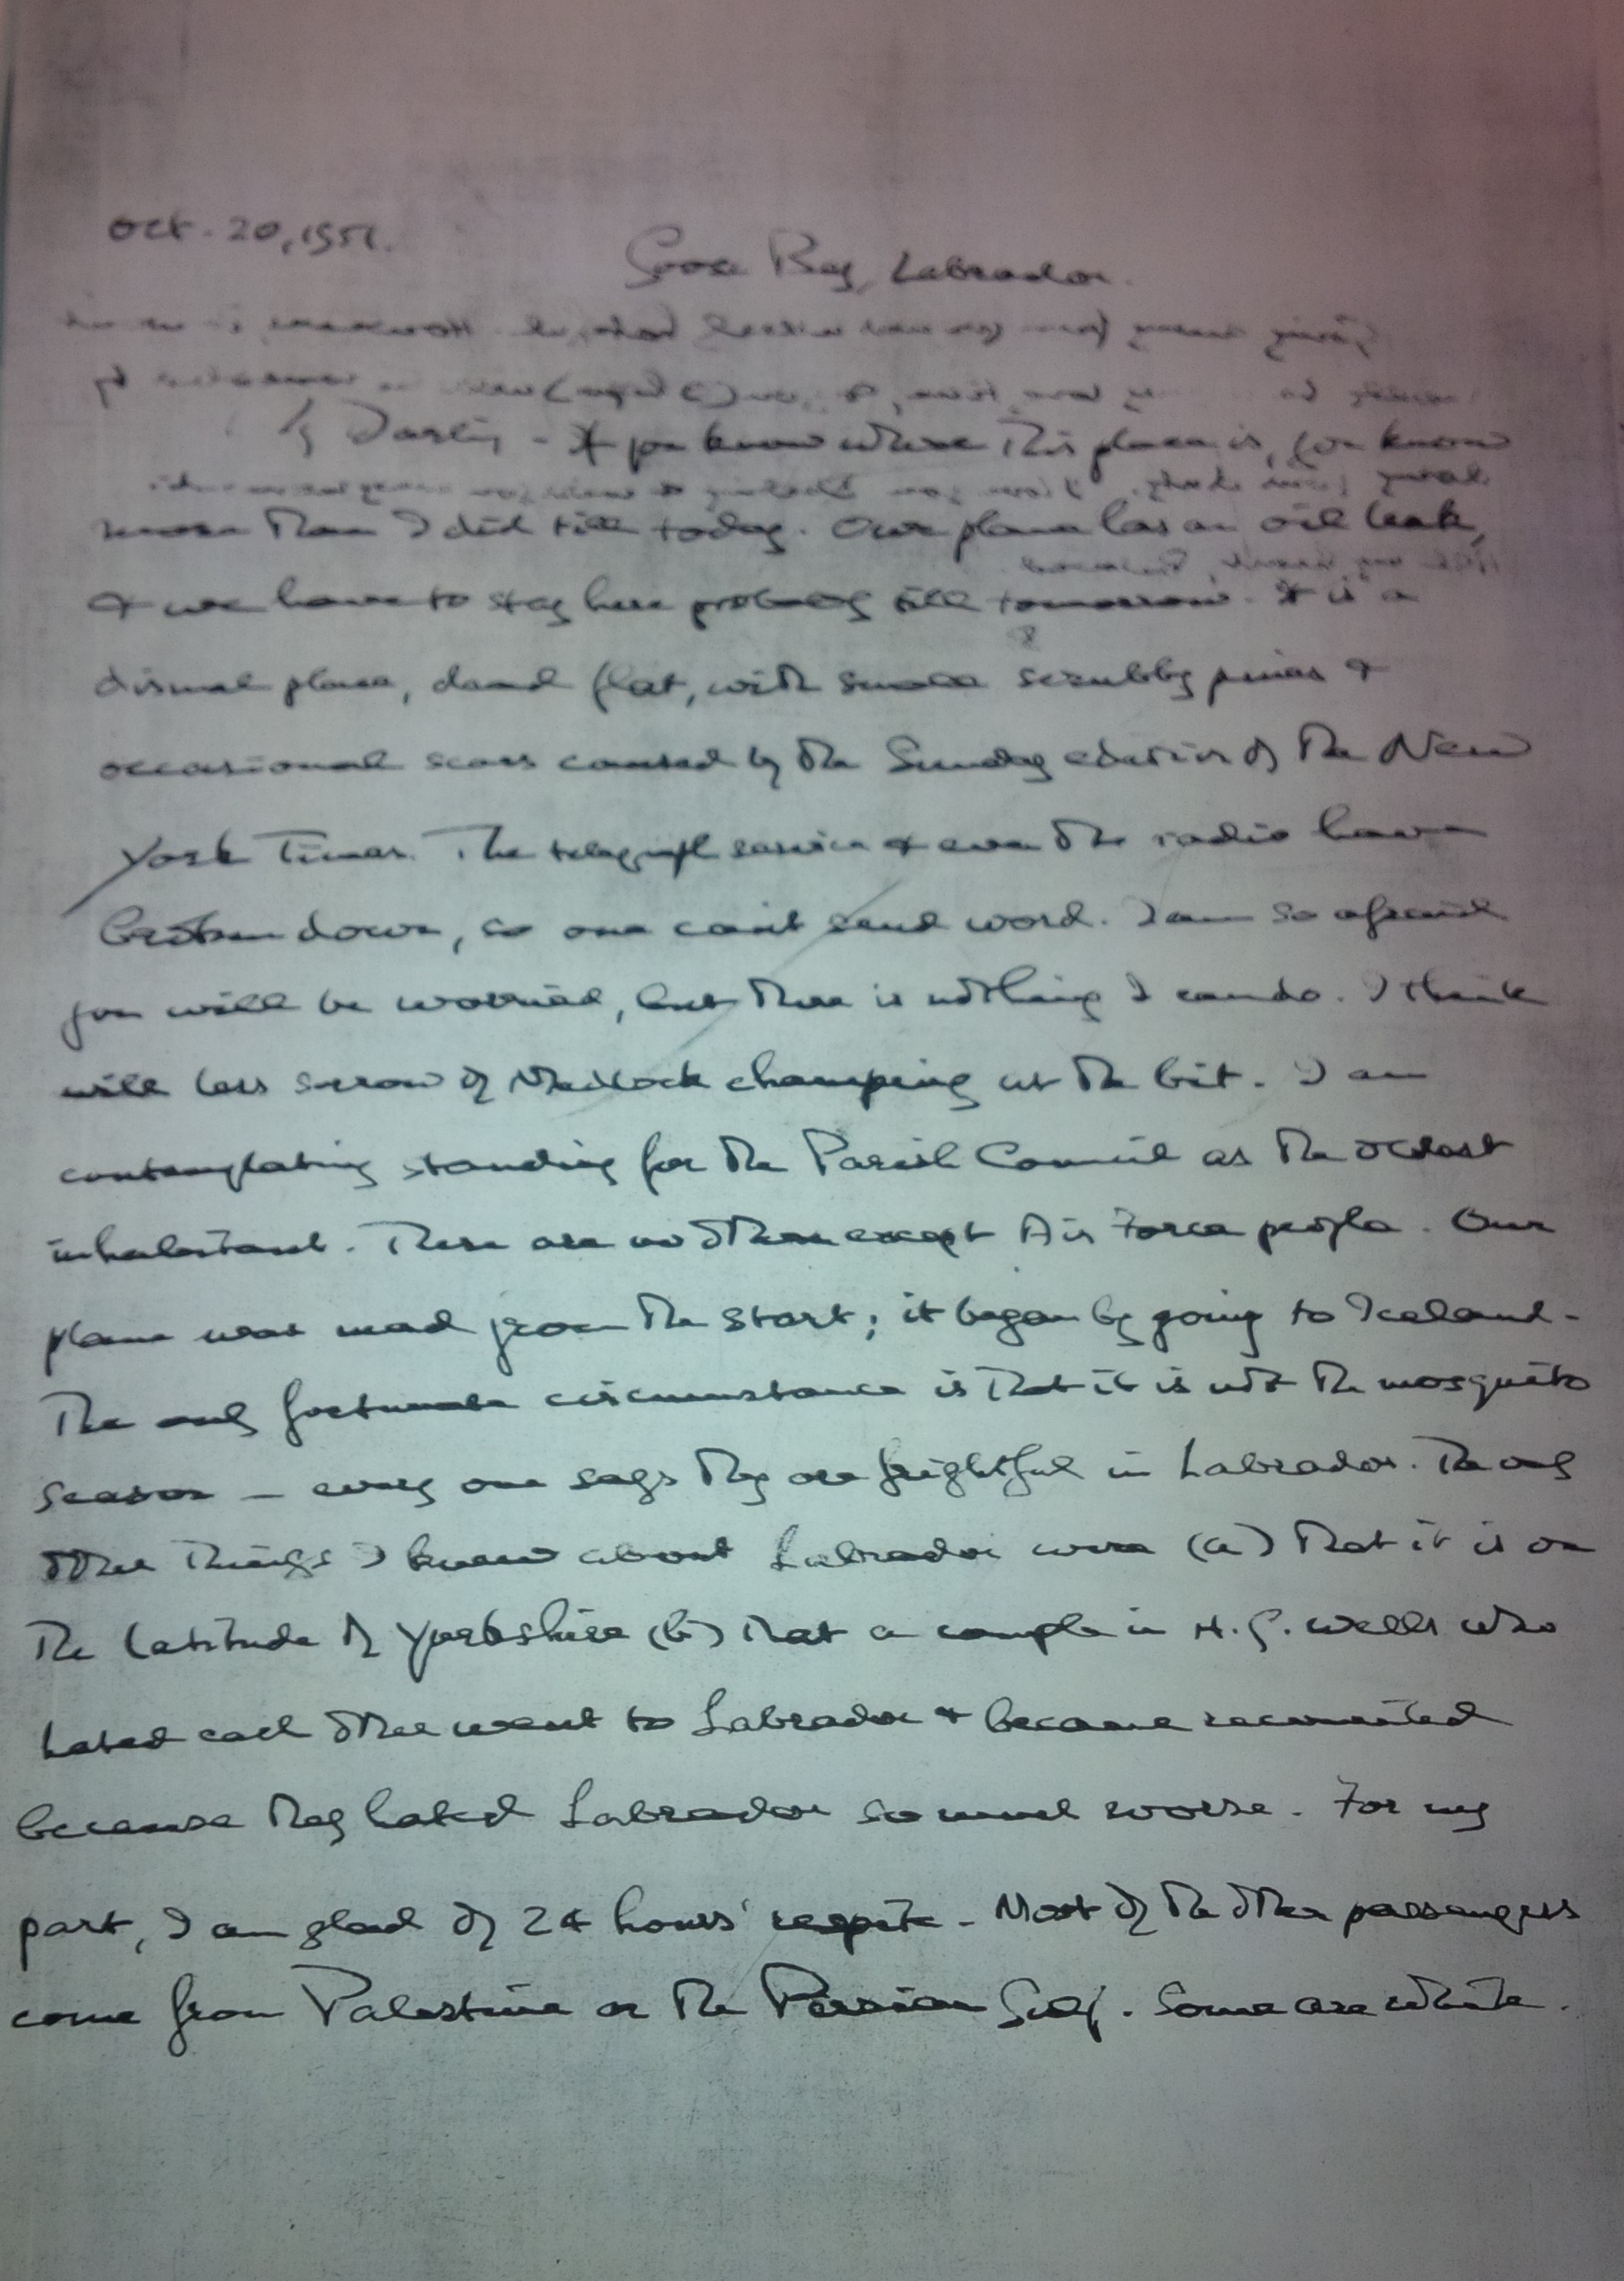 Oct. 20, 1951.
Goose Bay, Labrador.
My Darling - If you know where this place is, you know
more than I did till today. Our plane has an oil leak,
& we have to stay here probably till tomorrow. It is a
dismal place, dead flat, with small scrubby pines &
occasional scars caused by the Sunday edition of the New
York Times. The telegraph service & even the radio have
broken down, so one can't send word. I am so afraid
you will be worried, but there is nothing I can do. I think
with less sorrow of Matlock champing at the bit. I am
contemplating standing for the Parish Council as the oldest
inhabitant. There are no others except Air Force people. Our
plane was mad from the start; it began by going to Iceland.
The only fortunate circumstance is that it is not the mosquito
season — every one says they are frightful in Labrador. The only
other things I knew about Labrador were (a) that it is on
the latitude of Yorkshire (b) that a couple in H. G. Wells who
hated each other went to Labrador & became reconciled
because they hated Labrador so much worse. For my
part, I am glad of 24 hours' respite. Most of the other passengers
come from Palestine or the Persian Gulf. Some are white.